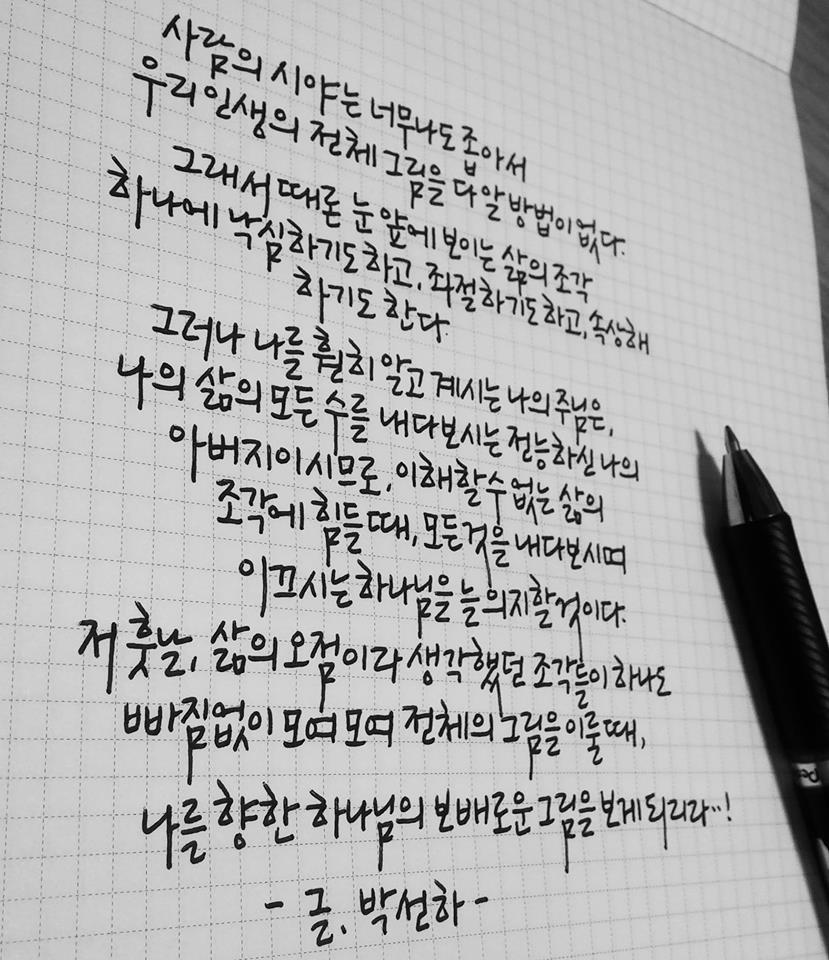 사람의 시야는 너무나도 좁아서
우리 인생의 전체 그림을 다 알 방법이 없다.
그래서 때론 눈 앞에 보이는 삶의 조각
하나에 낙심하기도 하고, 좌절하기도 하고, 속상해
하기도 한다.
그러나 나를 훤히 알고 계시는 나의 주님은,
나의 삶의 모든 수를 내다보시는 전능하신 나의
아버지이시므로, 이해할 수 없는 삶의
조각에 힘들 때, 모든 것을 내다보시며
이끄시는 하나님을 늘 의지할 것이다.
저 훗날, 삶의 오점이라 생각했던 조각들이 하나도
빠짐없이 모여 모여 전체의 그림을 이룰 때,
나를 향한 하나님의 보배로운 그림을 보게 되리라...!
- 글. 박선하 -